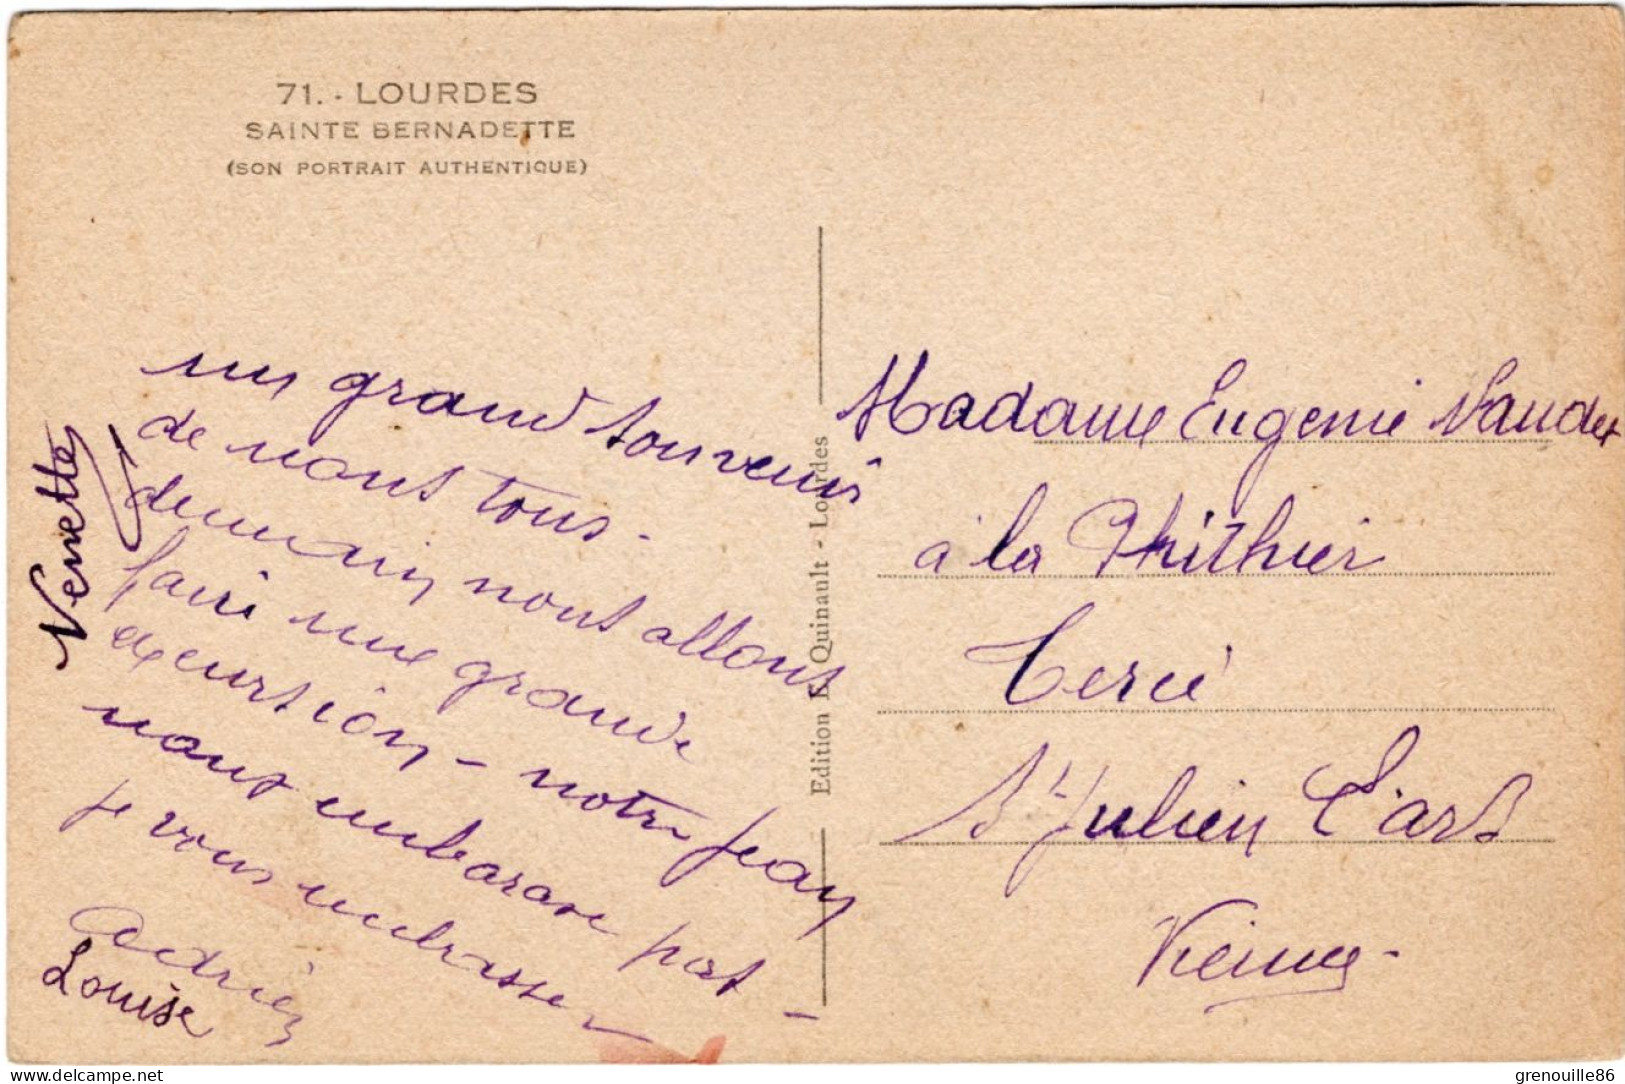 71. - LOURDES
SAINTE BERNADETTE
(SON PORTRAIT AUTHENTIQUE)
un grand souvenir
de nous tous -
demain nous allons
faire une grande
excursion - notre jean
nous embarase pas -
je vous embrasse -
Adrien
Louise
Nenette
Edition E. Quinault - Lourdes
Madame Eugenie Naudet
à la
Tercé
St Julien L'ars
Vienne -
delcampe.net
grenouille86